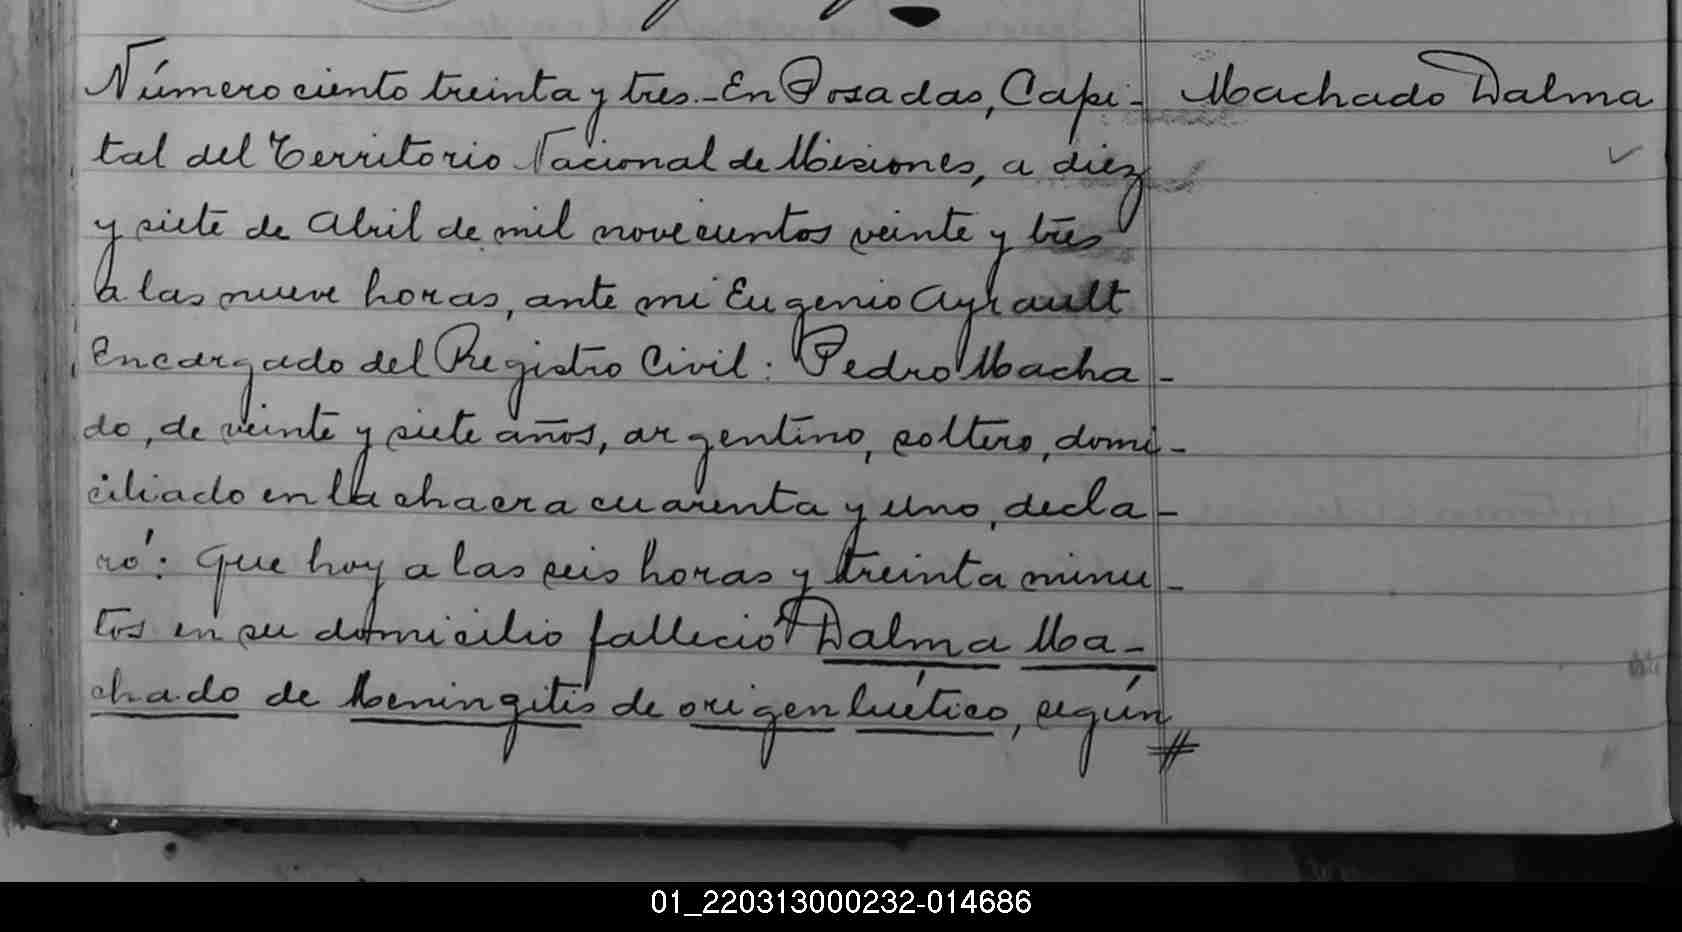 Número ciento treinta y tres.- En Posadas, Capi-
Machado Dalma
tal del Territorio Nacional de Misiones, a diez
y siete de Abril de mil novecientos veinte y tres
a las nueve horas, ante mi Eugenio Ayrault
Encargado del Registro Civil: Pedro Macha-
do, de veinte y siete años, argentino, soltero, domi-
ciliado en la chacra cuarenta y uno, decla-
ró: Que hoy a las seis horas y treinta minu-
tos en su domicilio falleció Dalma Ma-
chado de Meningitis de origen luético, según
01_220313000232-014686